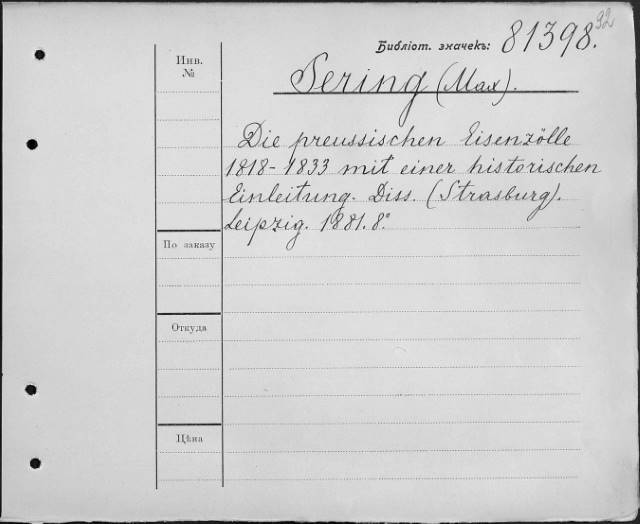 92
Библіот. значекъ: 81398.
Инв.
№
Sering (Max).
Die preussischen Eisenzölle
1818-1833 mit einer historischen
Einleitung. Diss. (Strasburg).
Leipzig. 1881. 8°
По заказу
Откуда
Цѣна